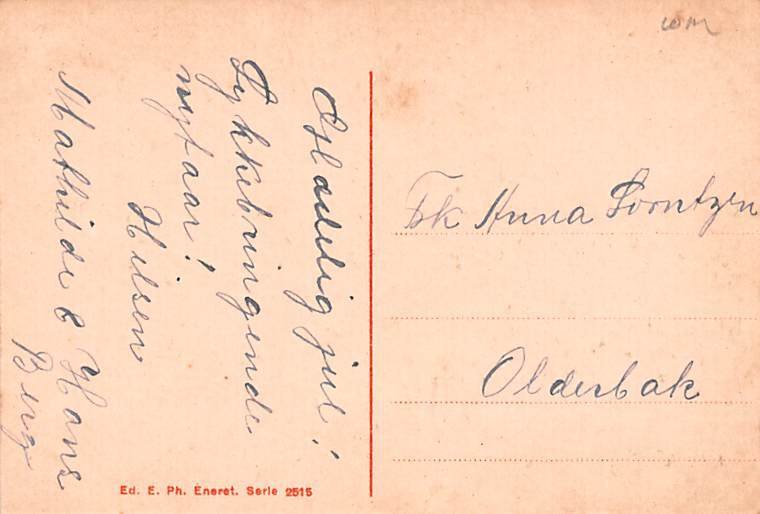 Gladelig jul!
Lykkebringende
nyfaar!
Hilsen
Mathilde & Hans
Berg
Frk Anna Lorntzen
Olderbak
Ed. E. Ph. Eneret. Serie 2515